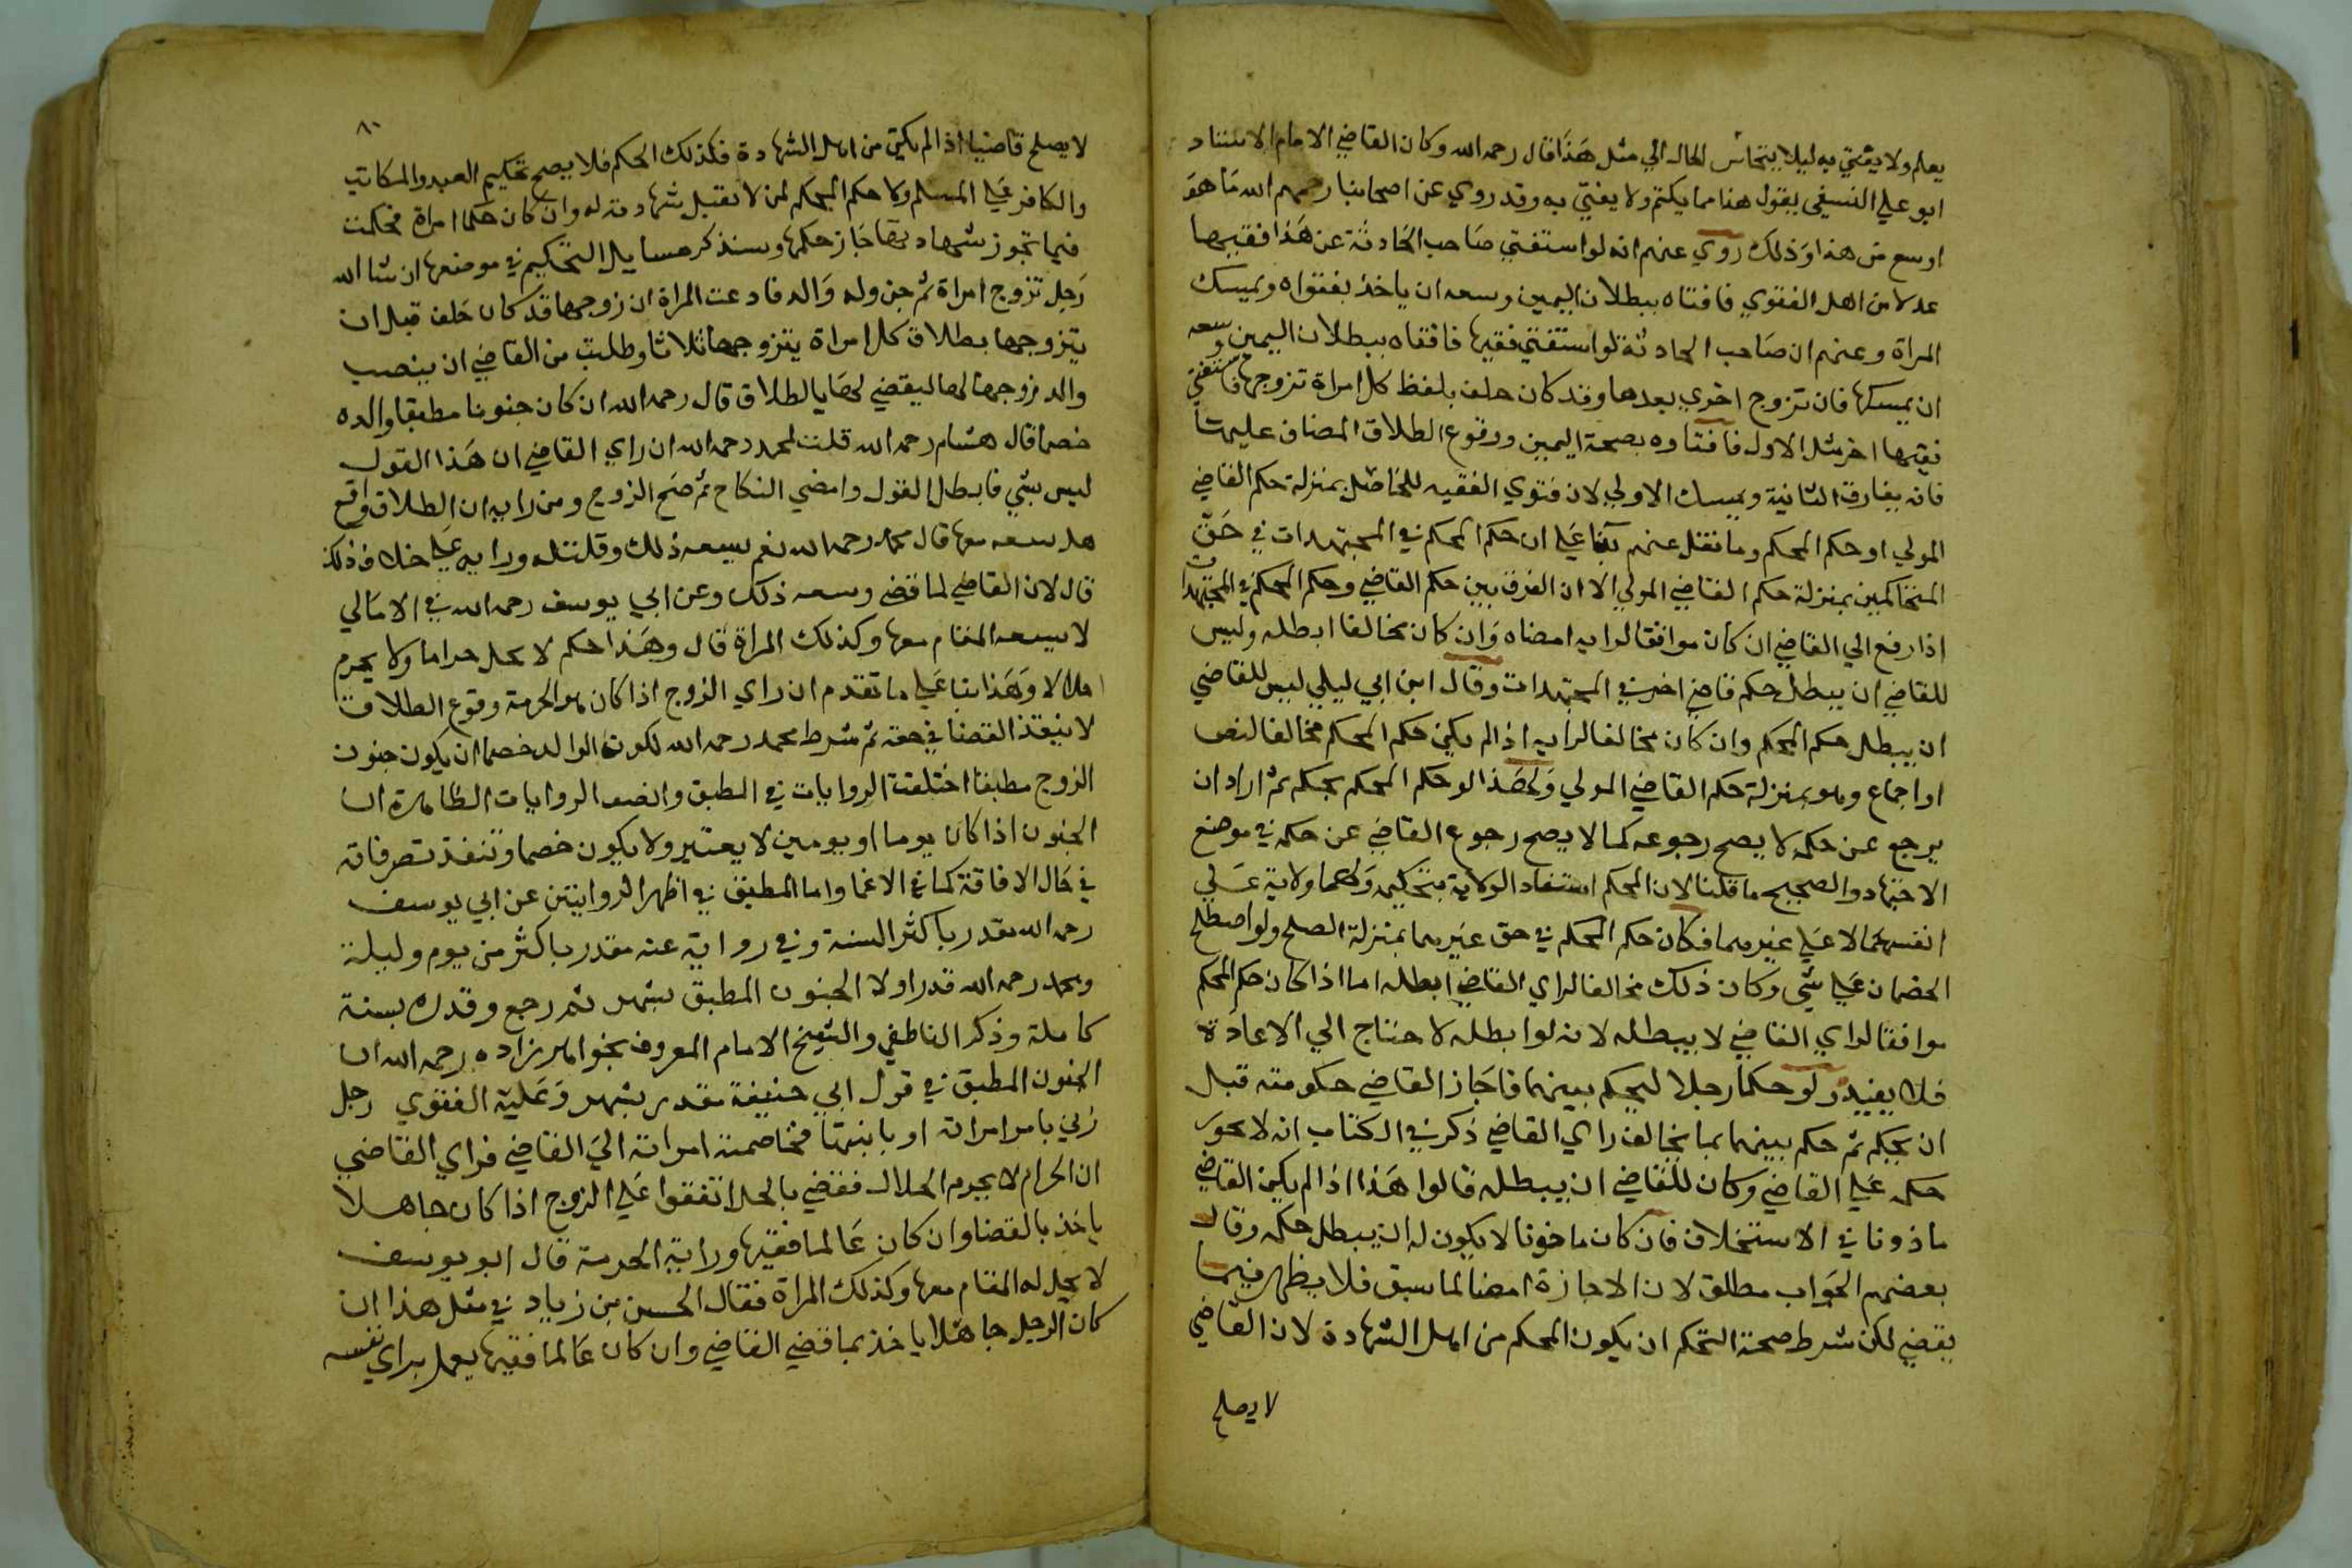 يعلم ولا يفتي به ليلا يتجاسر الجهال الي مثل هذا قال رحمه الله وكان القاضي الامام الاستاد
ابو علي النسفي يقول هذا مما يكتم ولا يفتي به وقد روي عن اصحابنا رحمهم الله ما هو
اوسع من هذا وذلك روي عنهم انه لو استفتي صاحب الحادثة عن هذا فقيها
عدلا من اهل الفتوي فافتاه ببطلان اليمين وسعه ان ياخذ بفتواه ويمسك
المراة وعنهم ان صاحب الحادثة لو استفتي فقيها فافتاه ببطلان اليمين وسعه
ان يمسكها فان تزوج اخري بعدها وقد كان حلف بلفظ كل امراة تزوجها فاستفتي
فقيها اخر مثل الاول فافتاه بصحة اليمين ووقوع الطلاق المضاف عليها
فانه يفارق الثانية ويمسك الاولي لان فتوي الفقيه للجاهل بمنزلة حكم القاضي
المولي او حكم المحكم وما نقل عنهم بنا علي ان حكم المحكم في المجتهدات في حق
المتحاكمين بمنزلة حكم القاضي المولي الا ان الفرق بين حكم القاضي وحكم المحكم في المجتهدات
اذا رفع الي القاضي ان كان موافقا لرايه امضاه وان كان مخالفا ابطله وليس
للقاضي ان يبطل حكم قاضي اخر في المجتهدات وقال ابن ابي ليلي ليس للقاضي
ان يبطل حكم المحكم وان كان مخالفا لرايه اذا لم يكن حكم المحكم مخالفا لنص
او اجماع وهو بمنزلة حكم القاضي المولي ولهذا لو حكم المحكم بحكم ثم اراد ان
يرجع عن حكمه لا يصح رجوعه كما لا يصح رجوع القاضي عن حكمه في موضع
الاجتهاد والصحيح ما قلنا لان المحكم استفاد الولاية بتحكيمهما ولهما ولاية علي
انفسهما لا علي غيرهما فكان حكم المحكم في حق غيرهما بمنزلة الصلح ولو اصطلح
الخصمان علي شي وكان ذلك مخالفا لراي القاضي ابطله اما اذا كان حكم المحكم
موافقا لراي القاضي لا يبطله لانه لو ابطله لاحتاج الي الاعادة
فلا يفيد ولو حكما رجلا ليحكم بينهما فاجاز القاضي حكومته قبل
ان يحكم ثم حكم بينهما بما يخالف راي القاضي ذكر في الكتاب انه لا يجوز
حكمه علي القاضي وكان للقاضي ان يبطله قالوا هذا اذا لم يكن القاضي
ماذونا في الاستخلاف فان كان ماذونا لا يكون له ان يبطل حكمه وقال
بعضهم الجواب مطلق لان الاجازة امضا لما سبق فلا يظهر فيما
يقضي لكن شرط صحة التحكم ان يكون المحكم من اهل الشهادة لان القاضي
لا يصلح
٨٠
لا يصلح قاضيا اذا لم يكن من اهل الشهادة فكذلك الحكم فلا يصح تحكيم العبد والمكاتب
والكافر علي المسلم ولا حكم المحكم لمن لا تقبل شهادته له وان كان حكما امراة فحكمت
فيما تجوز شهادتها جاز حكمها وسنذكر مسايل التحكيم في موضعها ان شا الله
رجل تزوج امراة ثم جن وله والد فادعت المراة ان زوجها قد كان حلف قبل ان
يتزوجها بطلاق كل امراة يتزوجها ثلاثا وطلبت من القاضي ان ينصب
والد زوجها لها ليقضي لها بالطلاق قال رحمه الله ان كان جنونا مطبقا والده
خصما قال هشام رحمه الله قلت لمحمد رحمه الله ان راي القاضي ان هذا القول
ليس بشي فابطل القول وامضي النكاح ثم صح الزوج ومن رايه ان الطلاق واقع
هل يسعه معها قال محمد رحمه الله نعم يسعه ذلك وقلت له ورايه علي خلاف ذلك
قال لان القاضي لما قضي وسعه ذلك وعن ابي يوسف رحمه الله في الامالي
لا يسعه المقام معها وكذلك المراة قال وهذا حكم لا يحل حراما ولا يحرم
حلالا وهذا بنا علي ما تقدم ان راي الزوج اذا كان هو الحرمة وقوع الطلاق
لا ينفذ القضا في حقه ثم شرط محمد رحمه الله لكون الوالد خصما ان يكون جنون
الزوج مطبقا اختلفت الروايات في المطبق واتفقت الروايات الظاهرة ان
الجنون اذا كان يوما او يومين لا يعتبر ولا يكون خصما وتنفذ تصرفاته
في حال الافاقة كما في الاغما واما المطبق في اظهر الروايتين عن ابي يوسف
رحمه الله مقدر باكثر السنة وفي رواية عنه مقدر باكثر من يوم وليلة
ومحمد رحمه الله قدر اولا الجنون المطبق بشهر ثم رجع وقدره بسنة
كاملة وذكر الناطفي والشيخ الامام المعروف بخواهر زاده رحمه الله ان
الجنون المطبق في قول ابي حنيفة مقدر بشهر وعليه الفتوي رجل
زني بام امراته او بابنتها فخاصمته امراته الي القاضي فراي القاضي
ان الحرام لا يحرم الحلال فقضي بالحل اتفقوا علي الزوج اذا كان جاهلا
ياخذ بالقضا وان كان عالما فقيها ورايه الحرمة قال ابو يوسف
لا يحل له المقام معها وكذلك المراة فقال الحسن بن زياد في مثل هذا ان
كان الرجل جاهلا ياخذ بما قضي القاضي وان كان عالما فقيها يعمل براي نفسه